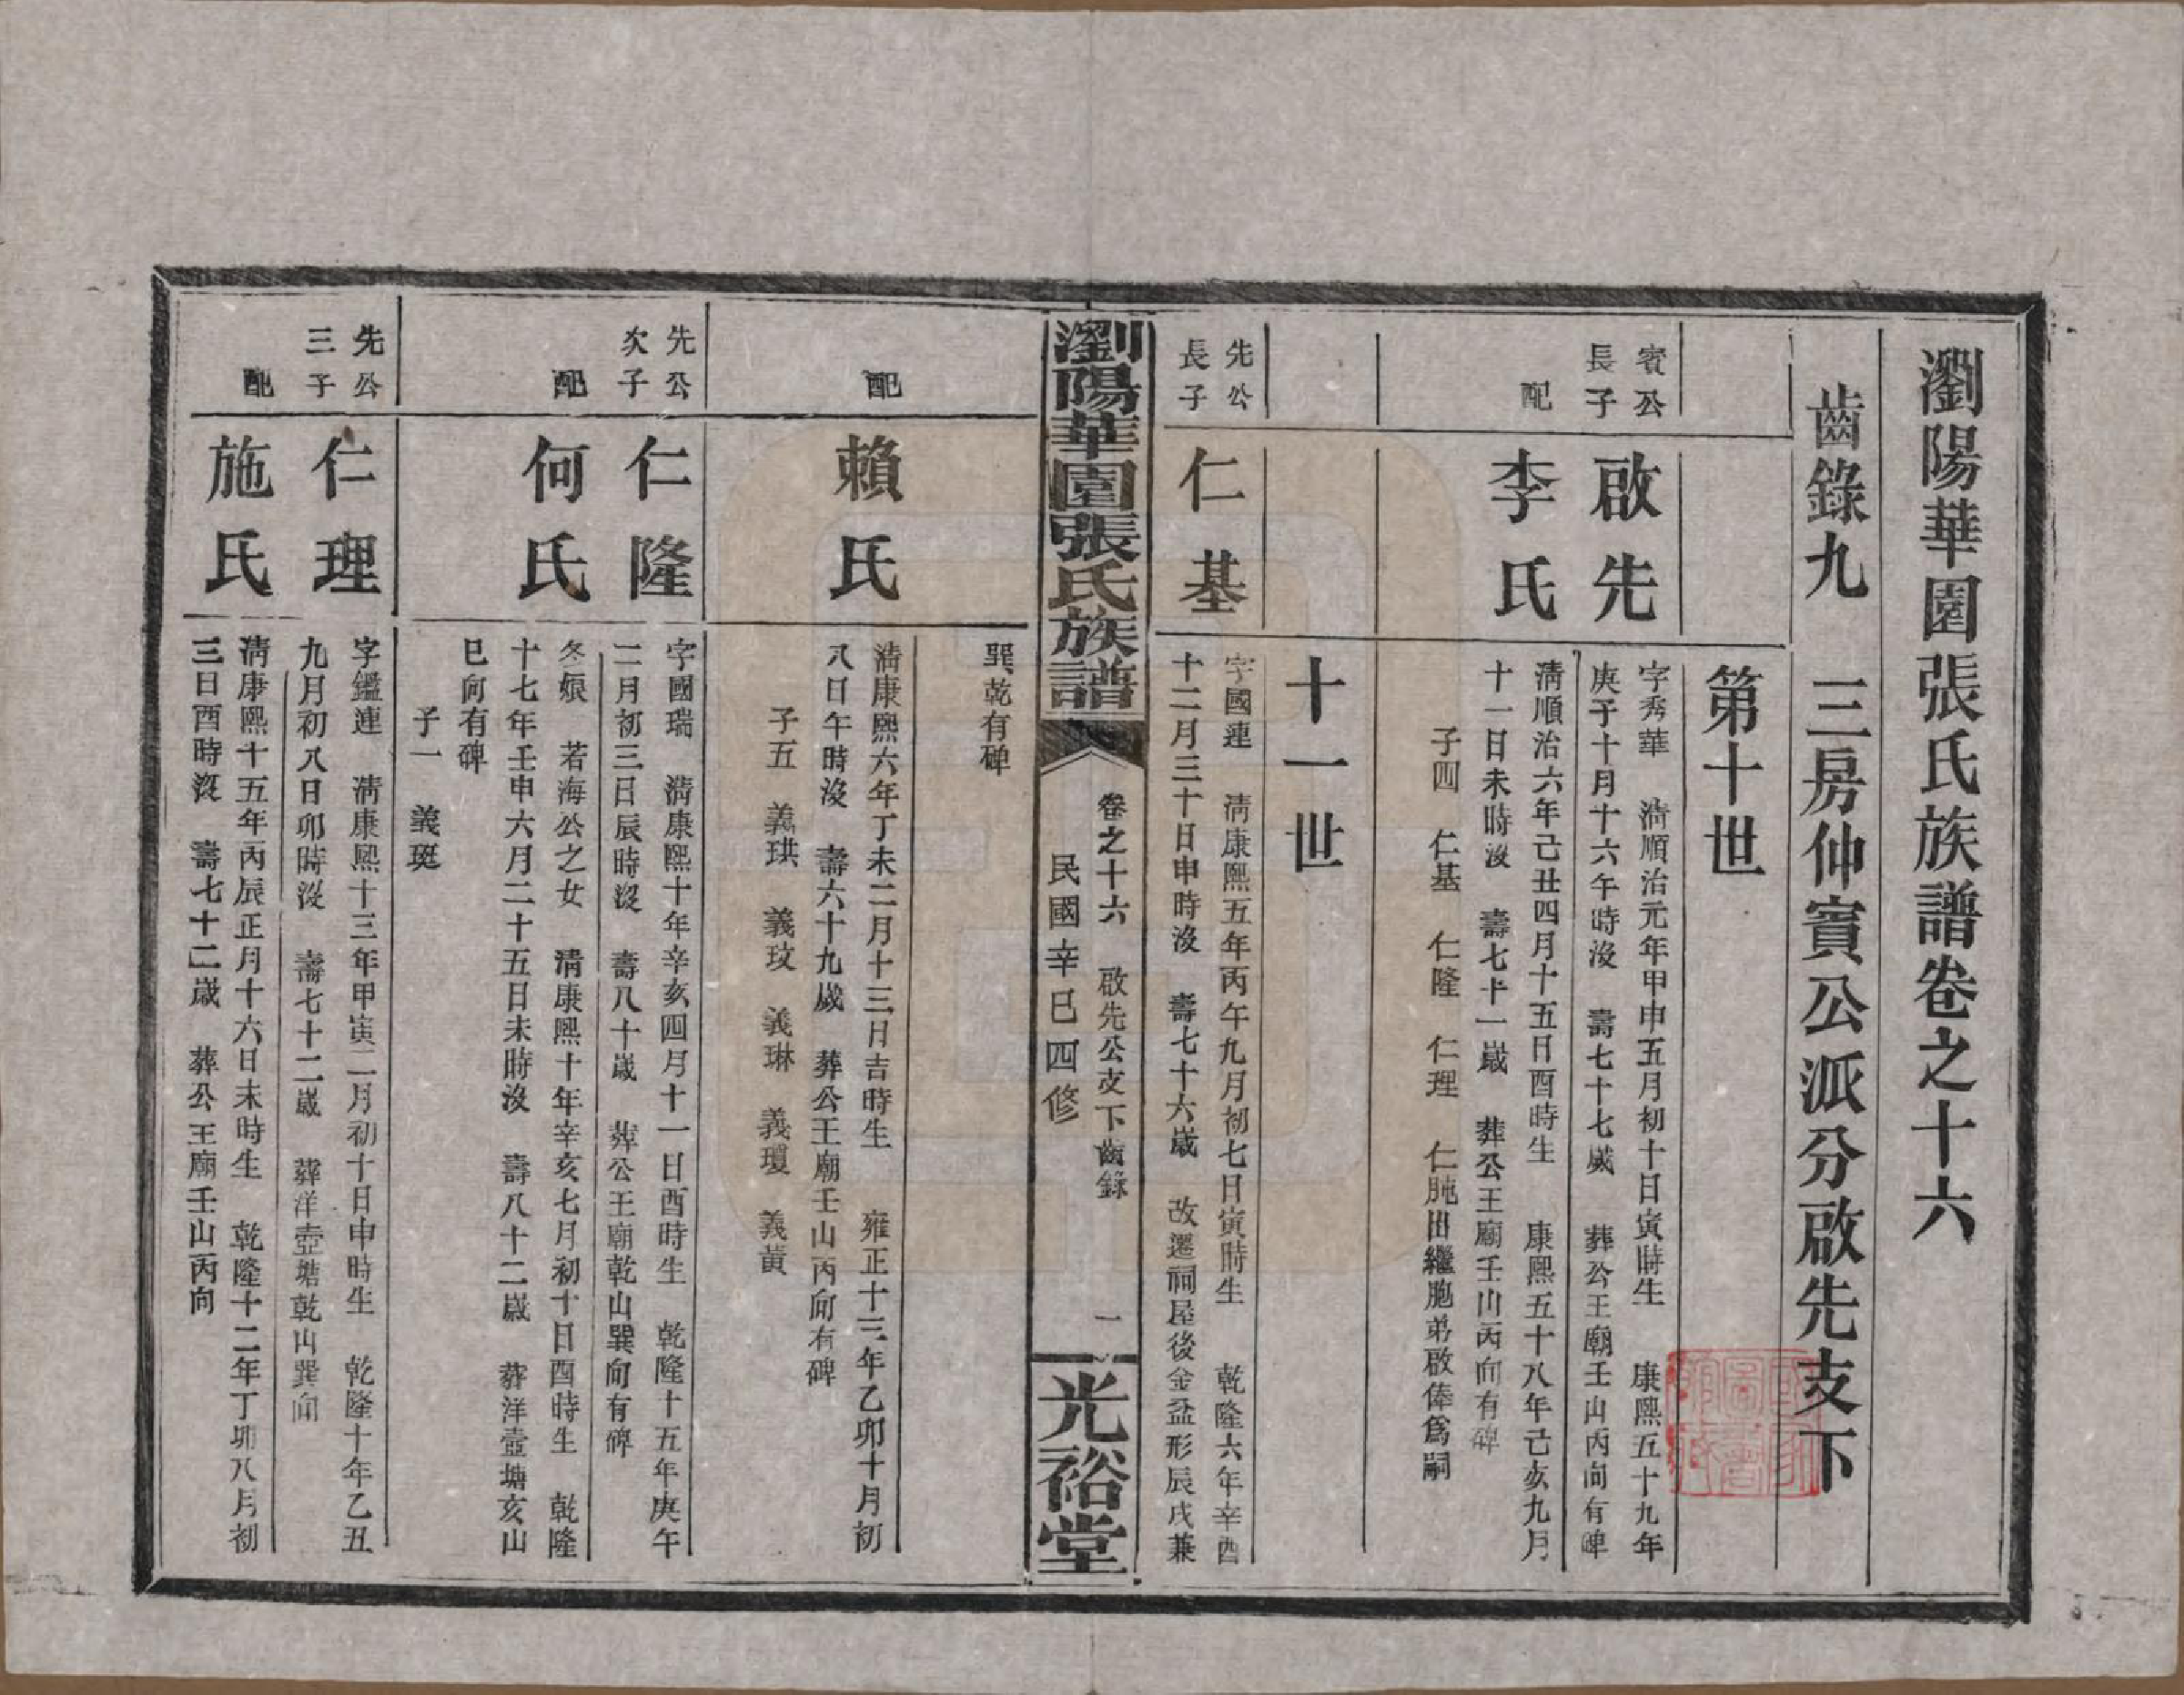 瀏陽華園張氏族譜卷之十六
齒錄九 三房仲賓公派分啟先支下
第十世
賓公
長子
啟先
字秀華 淸順治元年甲申五月初十日寅時生 康熙五十九年
庚子十月十六午時沒 壽七十七歲 葬公王廟壬山丙向有碑
配
李氏
淸順治六年己丑四月十五日酉時生 康熙五十八年己亥九月
十一日未時沒 壽七十一歲 葬公王廟壬山丙向有碑
子四 仁基 仁隆 仁理 仁肫出繼胞弟啟俸爲嗣
十一世
先公
長子
仁基
字國連 淸康熙五年丙午九月初七日寅時生 乾隆六年辛酉
十二月三十日申時沒 壽七十六歲 改遷祠屋後金盆形辰戌兼
瀏陽華園張氏族譜
卷之十六 啟先公支下齒錄
民國辛巳四修
一
光裕堂
巽乾有碑
配
賴氏
淸康熙六年丁未二月十三日吉時生 雍正十三年乙卯十月初
八日午時沒 壽六十九歲 葬公王廟壬山丙向有碑
子五 義珙 義玟 義琳 義瓊 義黃
先公
次子
仁隆
字國瑞 淸康熙十年辛亥四月十一日酉時生 乾隆十五年庚午
二月初三日辰時沒 壽八十歲 葬公王廟乾山巽向有碑
配
何氏
冬娘 若海公之女 淸康熙十年辛亥七月初十日酉時生 乾隆
十七年壬申六月二十五日未時沒 壽八十二歲 葬洋壼塘亥山
巳向有碑
子一 義珽
先公
三子
仁理
字鑑連 淸康熙十三年甲寅二月初十日申時生 乾隆十年乙丑
九月初八日卯時沒 壽七十二歲 葬洋壼塘乾山巽向
配
施氏
淸康熙十五年丙辰正月十六日未時生 乾隆十二年丁卯八月初
三日酉時沒 壽七十二歲 葬公王廟壬山丙向